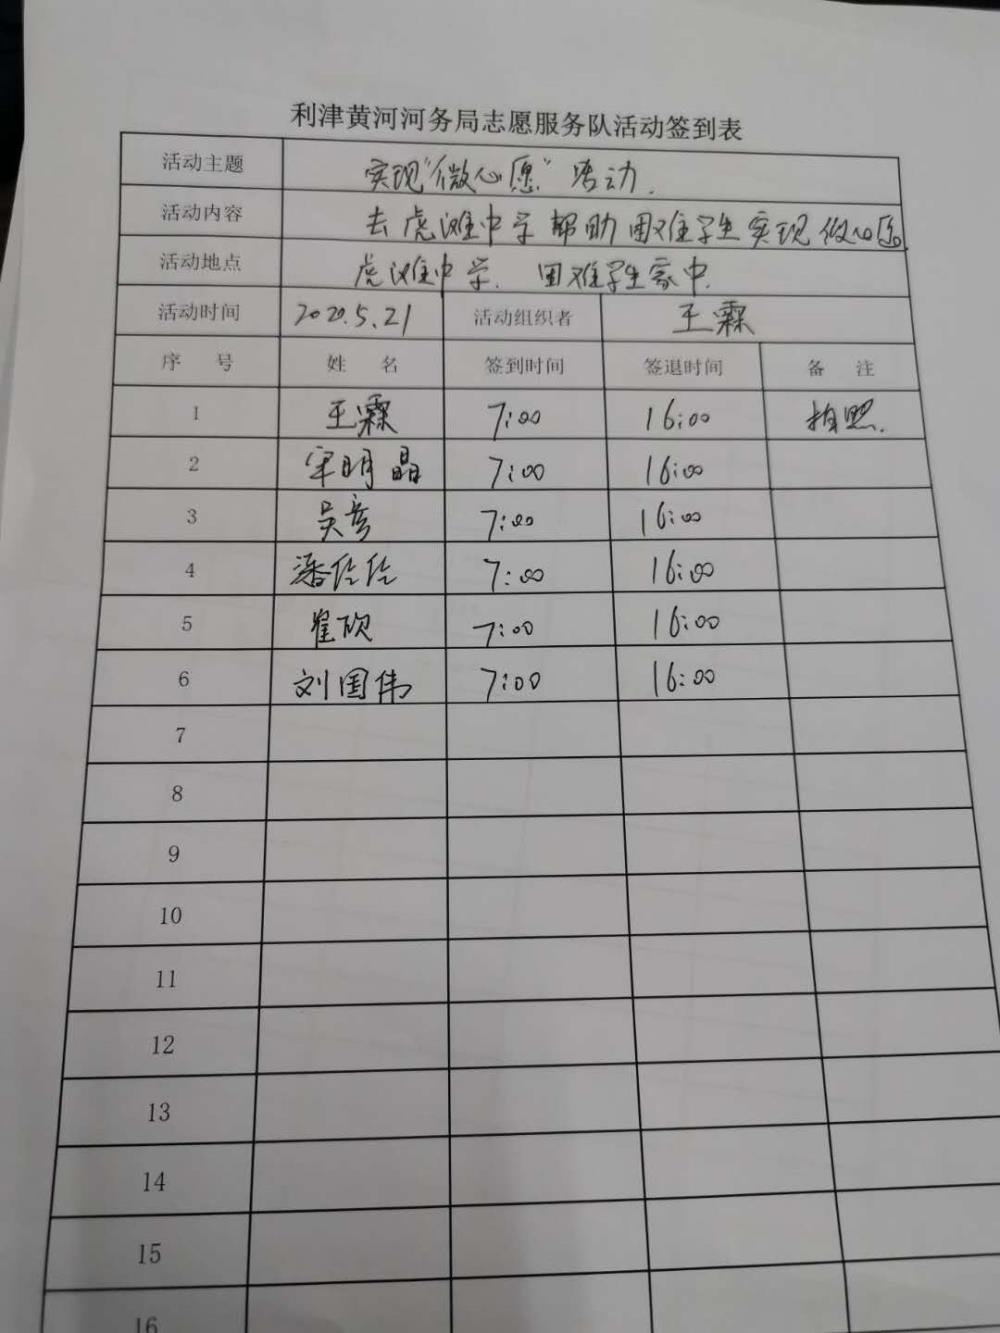 利津黄河河务局志愿服务队活动签到表
活动主题 实现“微心愿”活动.
活动内容 去虎滩中学帮助困难学生实现微心愿.
活动地点 虎滩中学. 困难学生家中.
活动时间 2020.5.21 活动组织者 王霖
序 号 姓 名 签到时间 签退时间 备 注
1 王霖 7:00 16:00 拍照.
2 宋明晶 7:00 16:00
3 吴彦 7:00 16:00
4 潘伶伶 7:00 16:00
5 崔欣 7:00 16:00
6 刘国伟 7:00 16:00
7
8
9
10
11
12
13
14
15
16